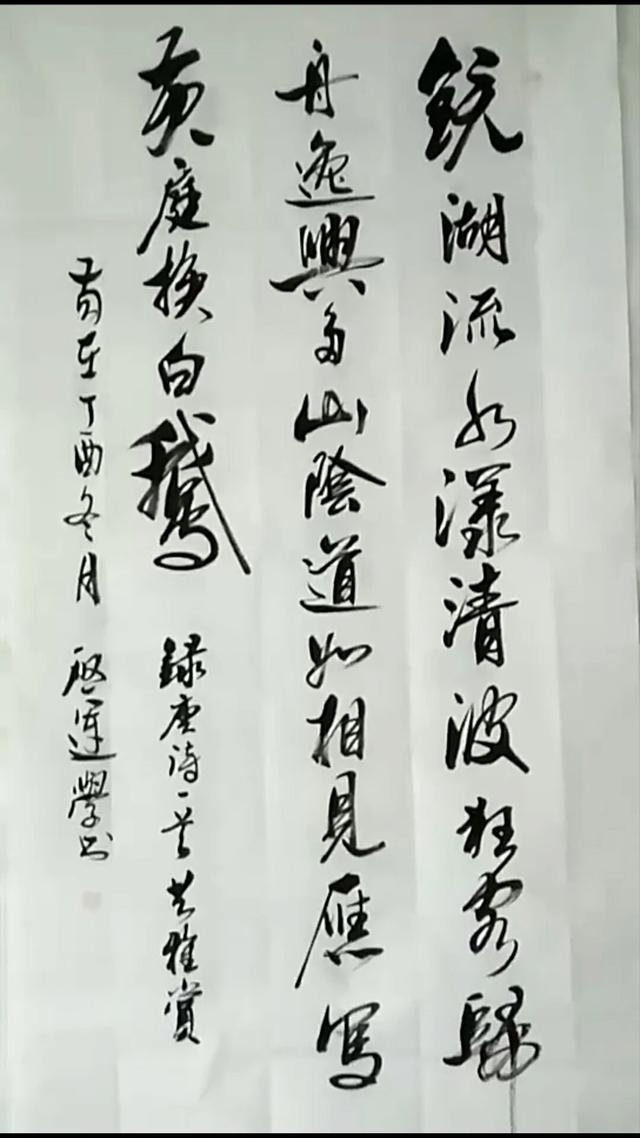 鏡湖流水漾清波狂客歸
舟逸興多山陰道如相見應写
黄庭換白鵝 録唐詩一首共雅賞
旹在丁酉冬月 啟運學书